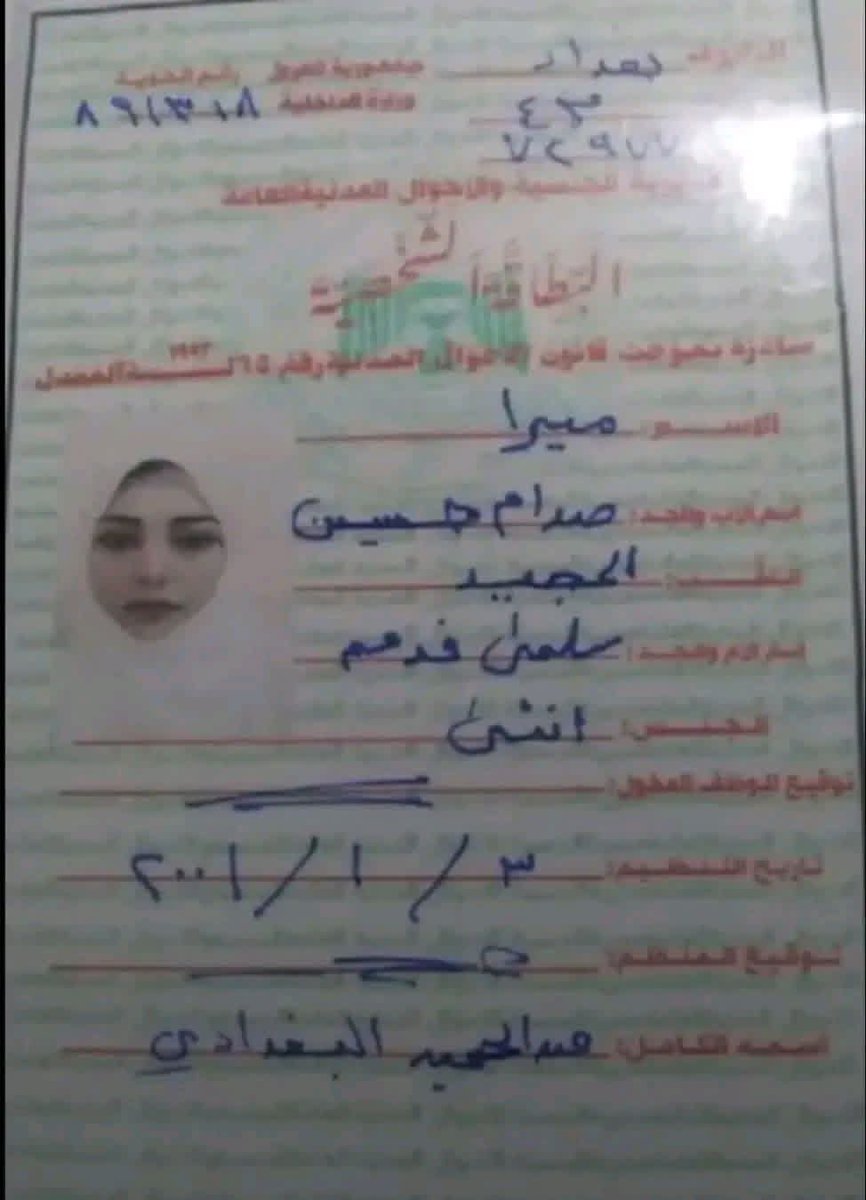 بغداد
جمهورية العراق
وزارة الداخلية
٤٣
٧٢٩٧٧
مديرية الجنسية والاحوال المدنية العامة
البطاقة الشخصية
صادرة بموجب قانون الاحوال المدنية رقم ٦٥ لسنة المعدل
الاسم: ميرا
اسم الاب والجد: صدام حسين
اللقب: المجيد
اسم الام والجد: سلمى
الجنس: انثى
توقيع الموظف المخول:
تاريخ التنظيم: ٣ / ١ / ٢٠٠١
توقيع المنظم:
اسمه الكامل: البغدادي